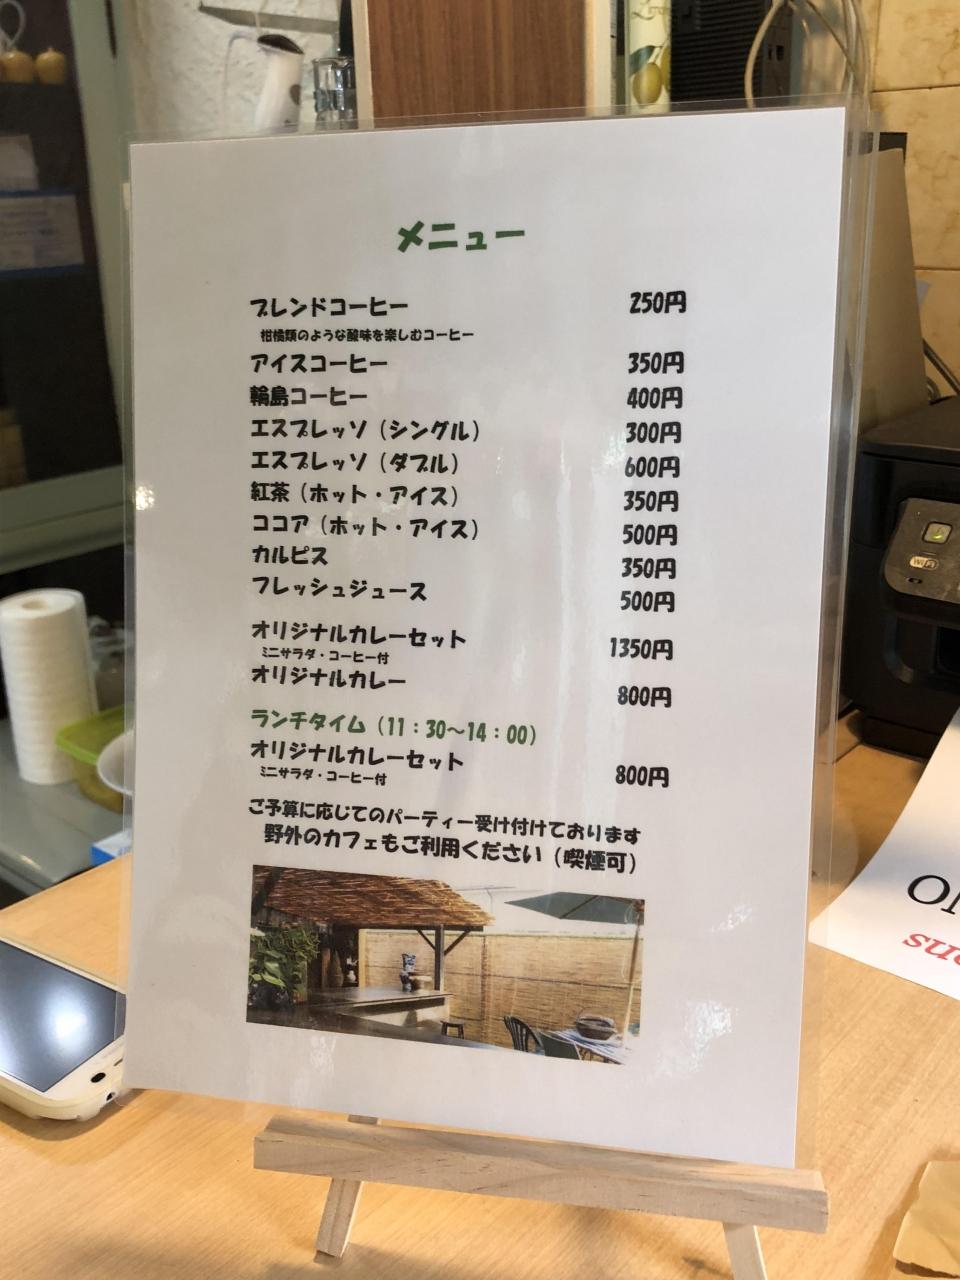 メニュー
ブレンドコーヒー 250円
柑橘類のような酸味を楽しむコーヒー
アイスコーヒー 350円
輪島コーヒー 400円
エスプレッソ（シングル） 300円
エスプレッソ（ダブル） 600円
紅茶（ホット・アイス） 350円
ココア（ホット・アイス） 500円
カルピス 350円
フレッシュジュース 500円
オリジナルカレーセット 1350円
ミニサラダ・コーヒー付
オリジナルカレー 800円
ランチタイム（11：30～14：00）
オリジナルカレーセット 800円
ミニサラダ・コーヒー付
ご予算に応じてのパーティー受け付けております
野外のカフェもご利用ください（喫煙可）
WiFi